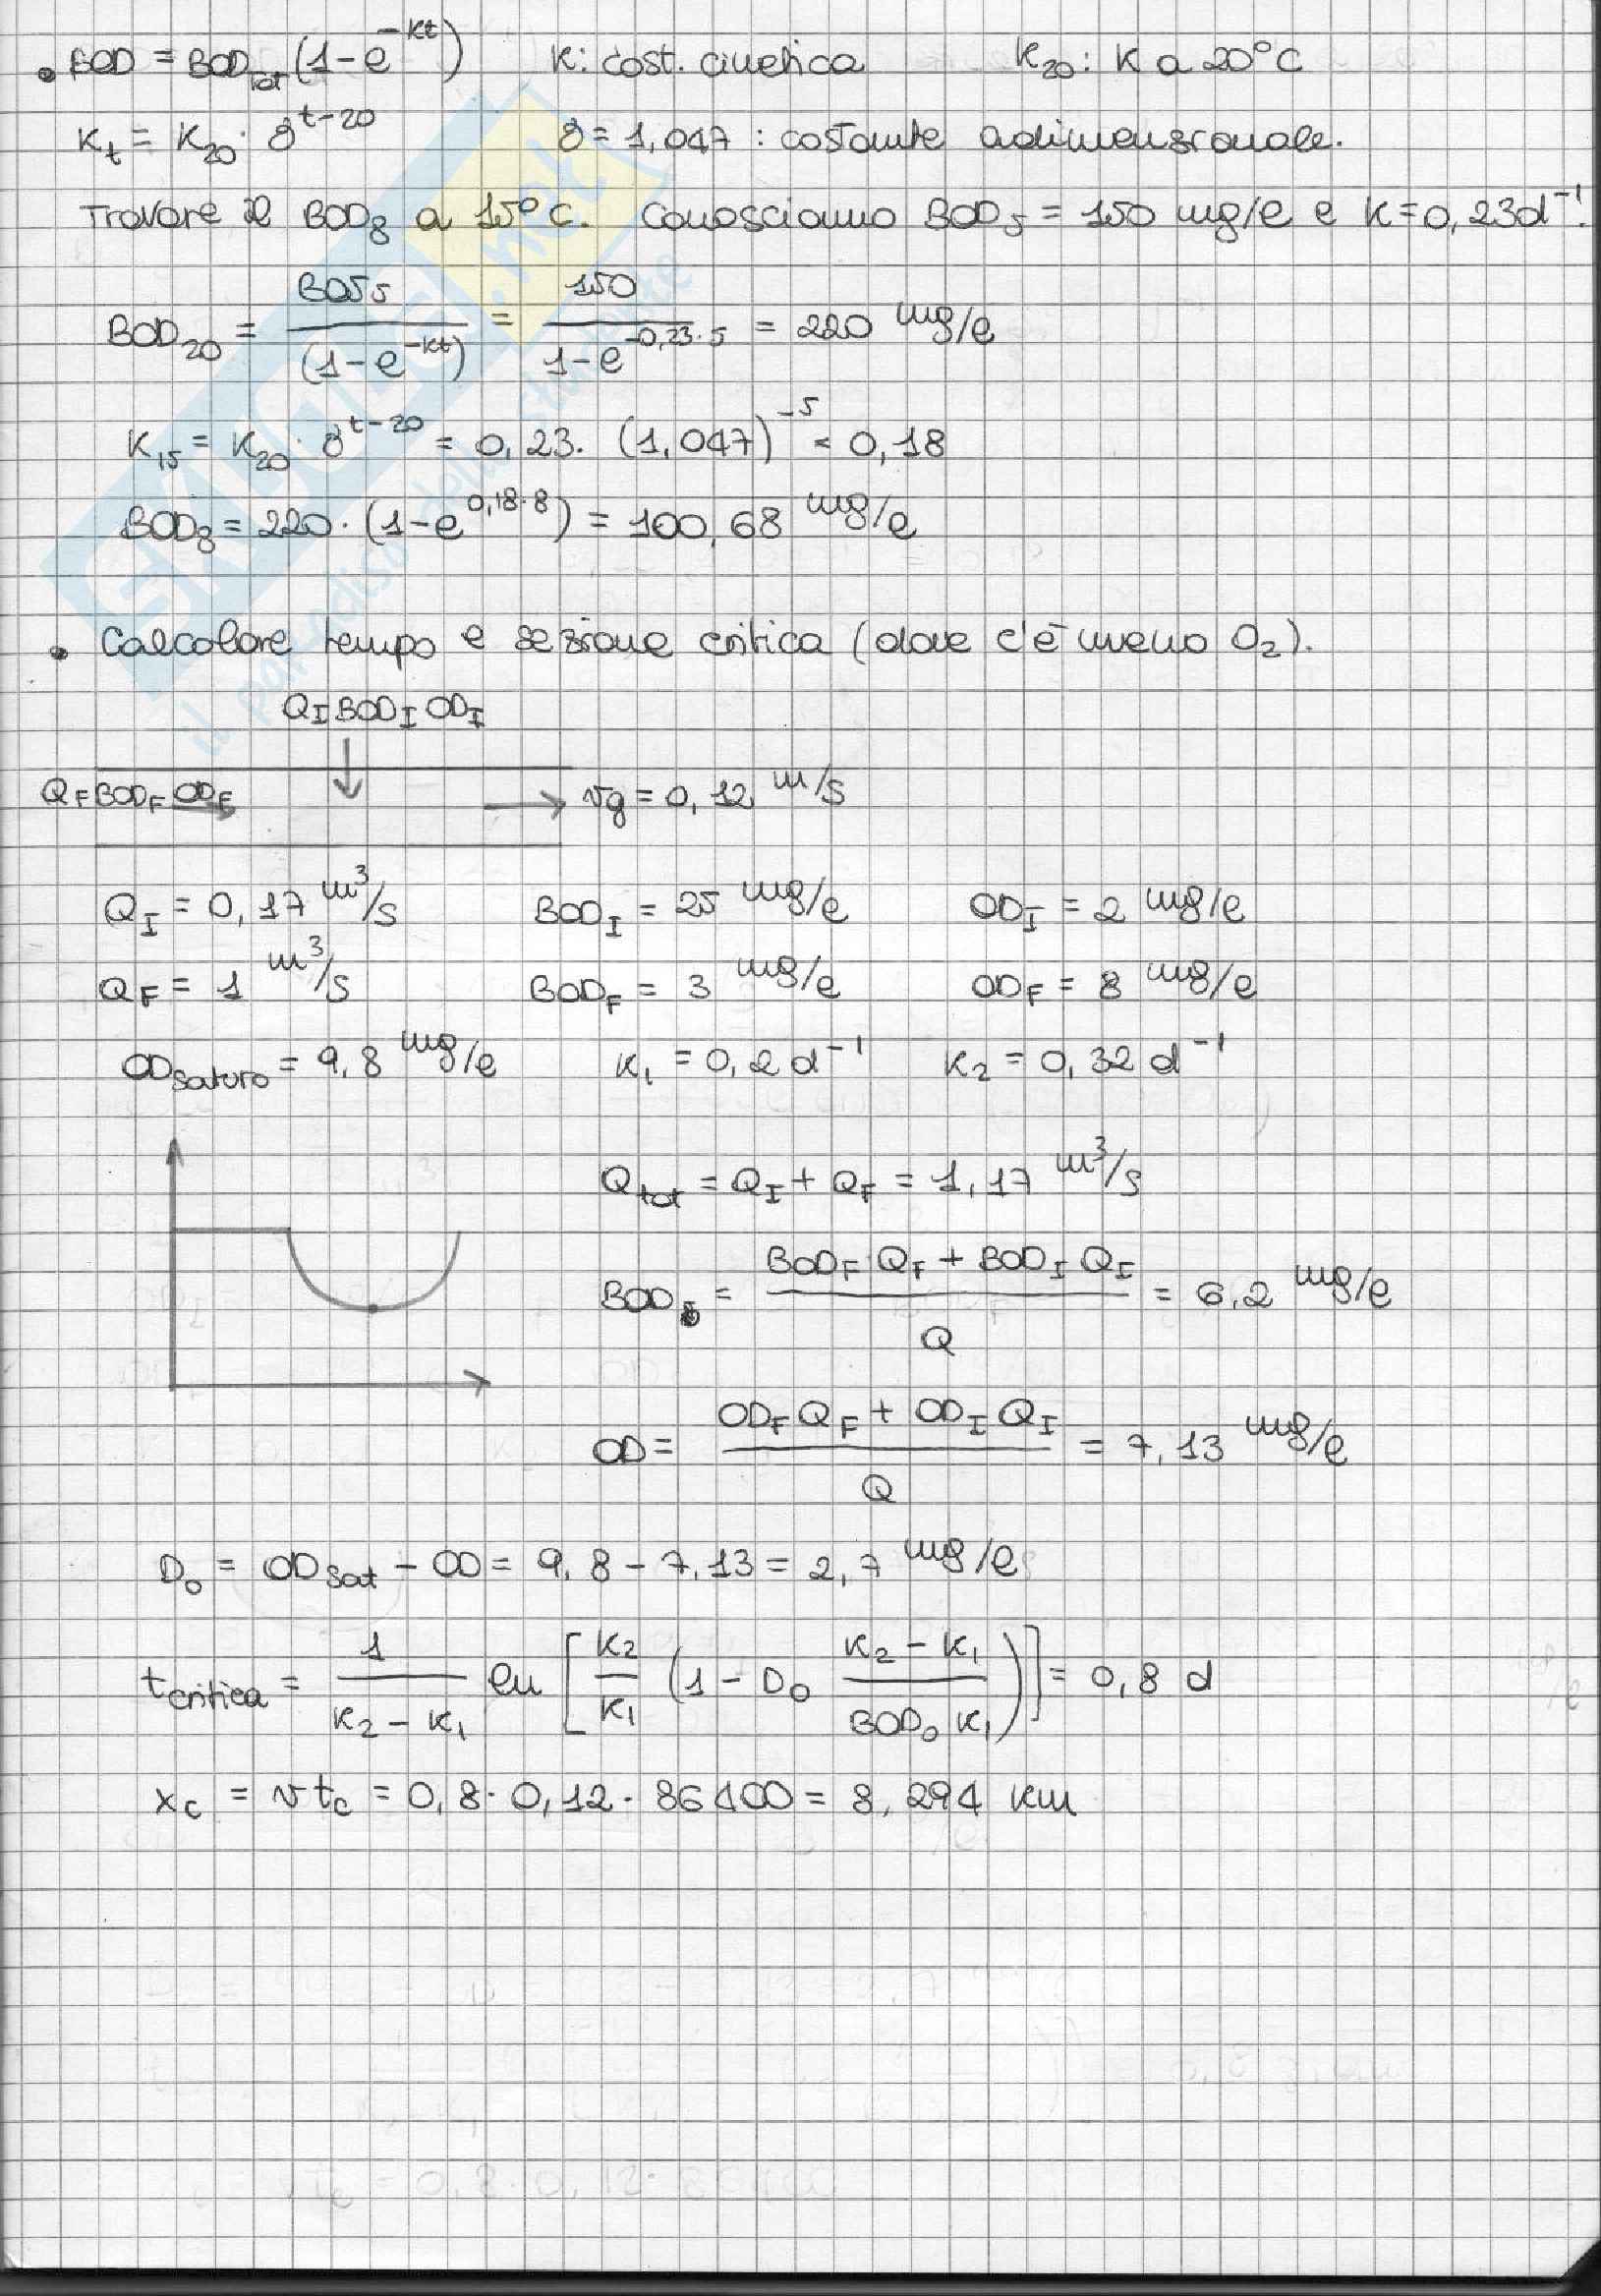 • BOD = BOD_tot (1-e^-kt) K: cost. cinetica K_20: K a 20°C
K_t = K_20 · ϑ^t-20 ϑ = 1,047 : costante adimensionale.
Trovare il BOD_8 a 15°C. Conosciamo BOD_5 = 150 mg/l e K=0,23d^-1.
BOD_20 = BOD_5 / (1-e^-kt) = 150 / 1-e^-0,23·5 = 220 mg/l
K_15 = K_20 · ϑ^t-20 = 0,23 · (1,047)^-5 = 0,18
BOD_8 = 220 · (1-e^0,18·8) = 100,68 mg/l
• Calcolare tempo e sezione critica (dove c'è meno O_2).
Q_I BOD_I OD_I
Q_F BOD_F OD_F → vg = 0,12 m/s
Q_I = 0,17 m^3/s BOD_I = 25 mg/l OD_I = 2 mg/l
Q_F = 1 m^3/s BOD_F = 3 mg/l OD_F = 8 mg/l
OD_saturo = 9,8 mg/l K_1 = 0,2 d^-1 K_2 = 0,32 d^-1
Q_tot = Q_I + Q_F = 1,17 m^3/s
BOD_0 = BOD_F Q_F + BOD_I Q_I / Q = 6,2 mg/l
OD = OD_F Q_F + OD_I Q_I / Q = 7,13 mg/l
D_0 = OD_sat - OD = 9,8 - 7,13 = 2,7 mg/l
t_critica = 1 / K_2 - K_1 ln [ K_2 / K_1 (1 - D_0 K_2 - K_1 / BOD_0 K_1 ) ] = 0,8 d
x_c = v t_c = 0,8 · 0,12 · 86400 = 8,294 km
SKUOLA.net